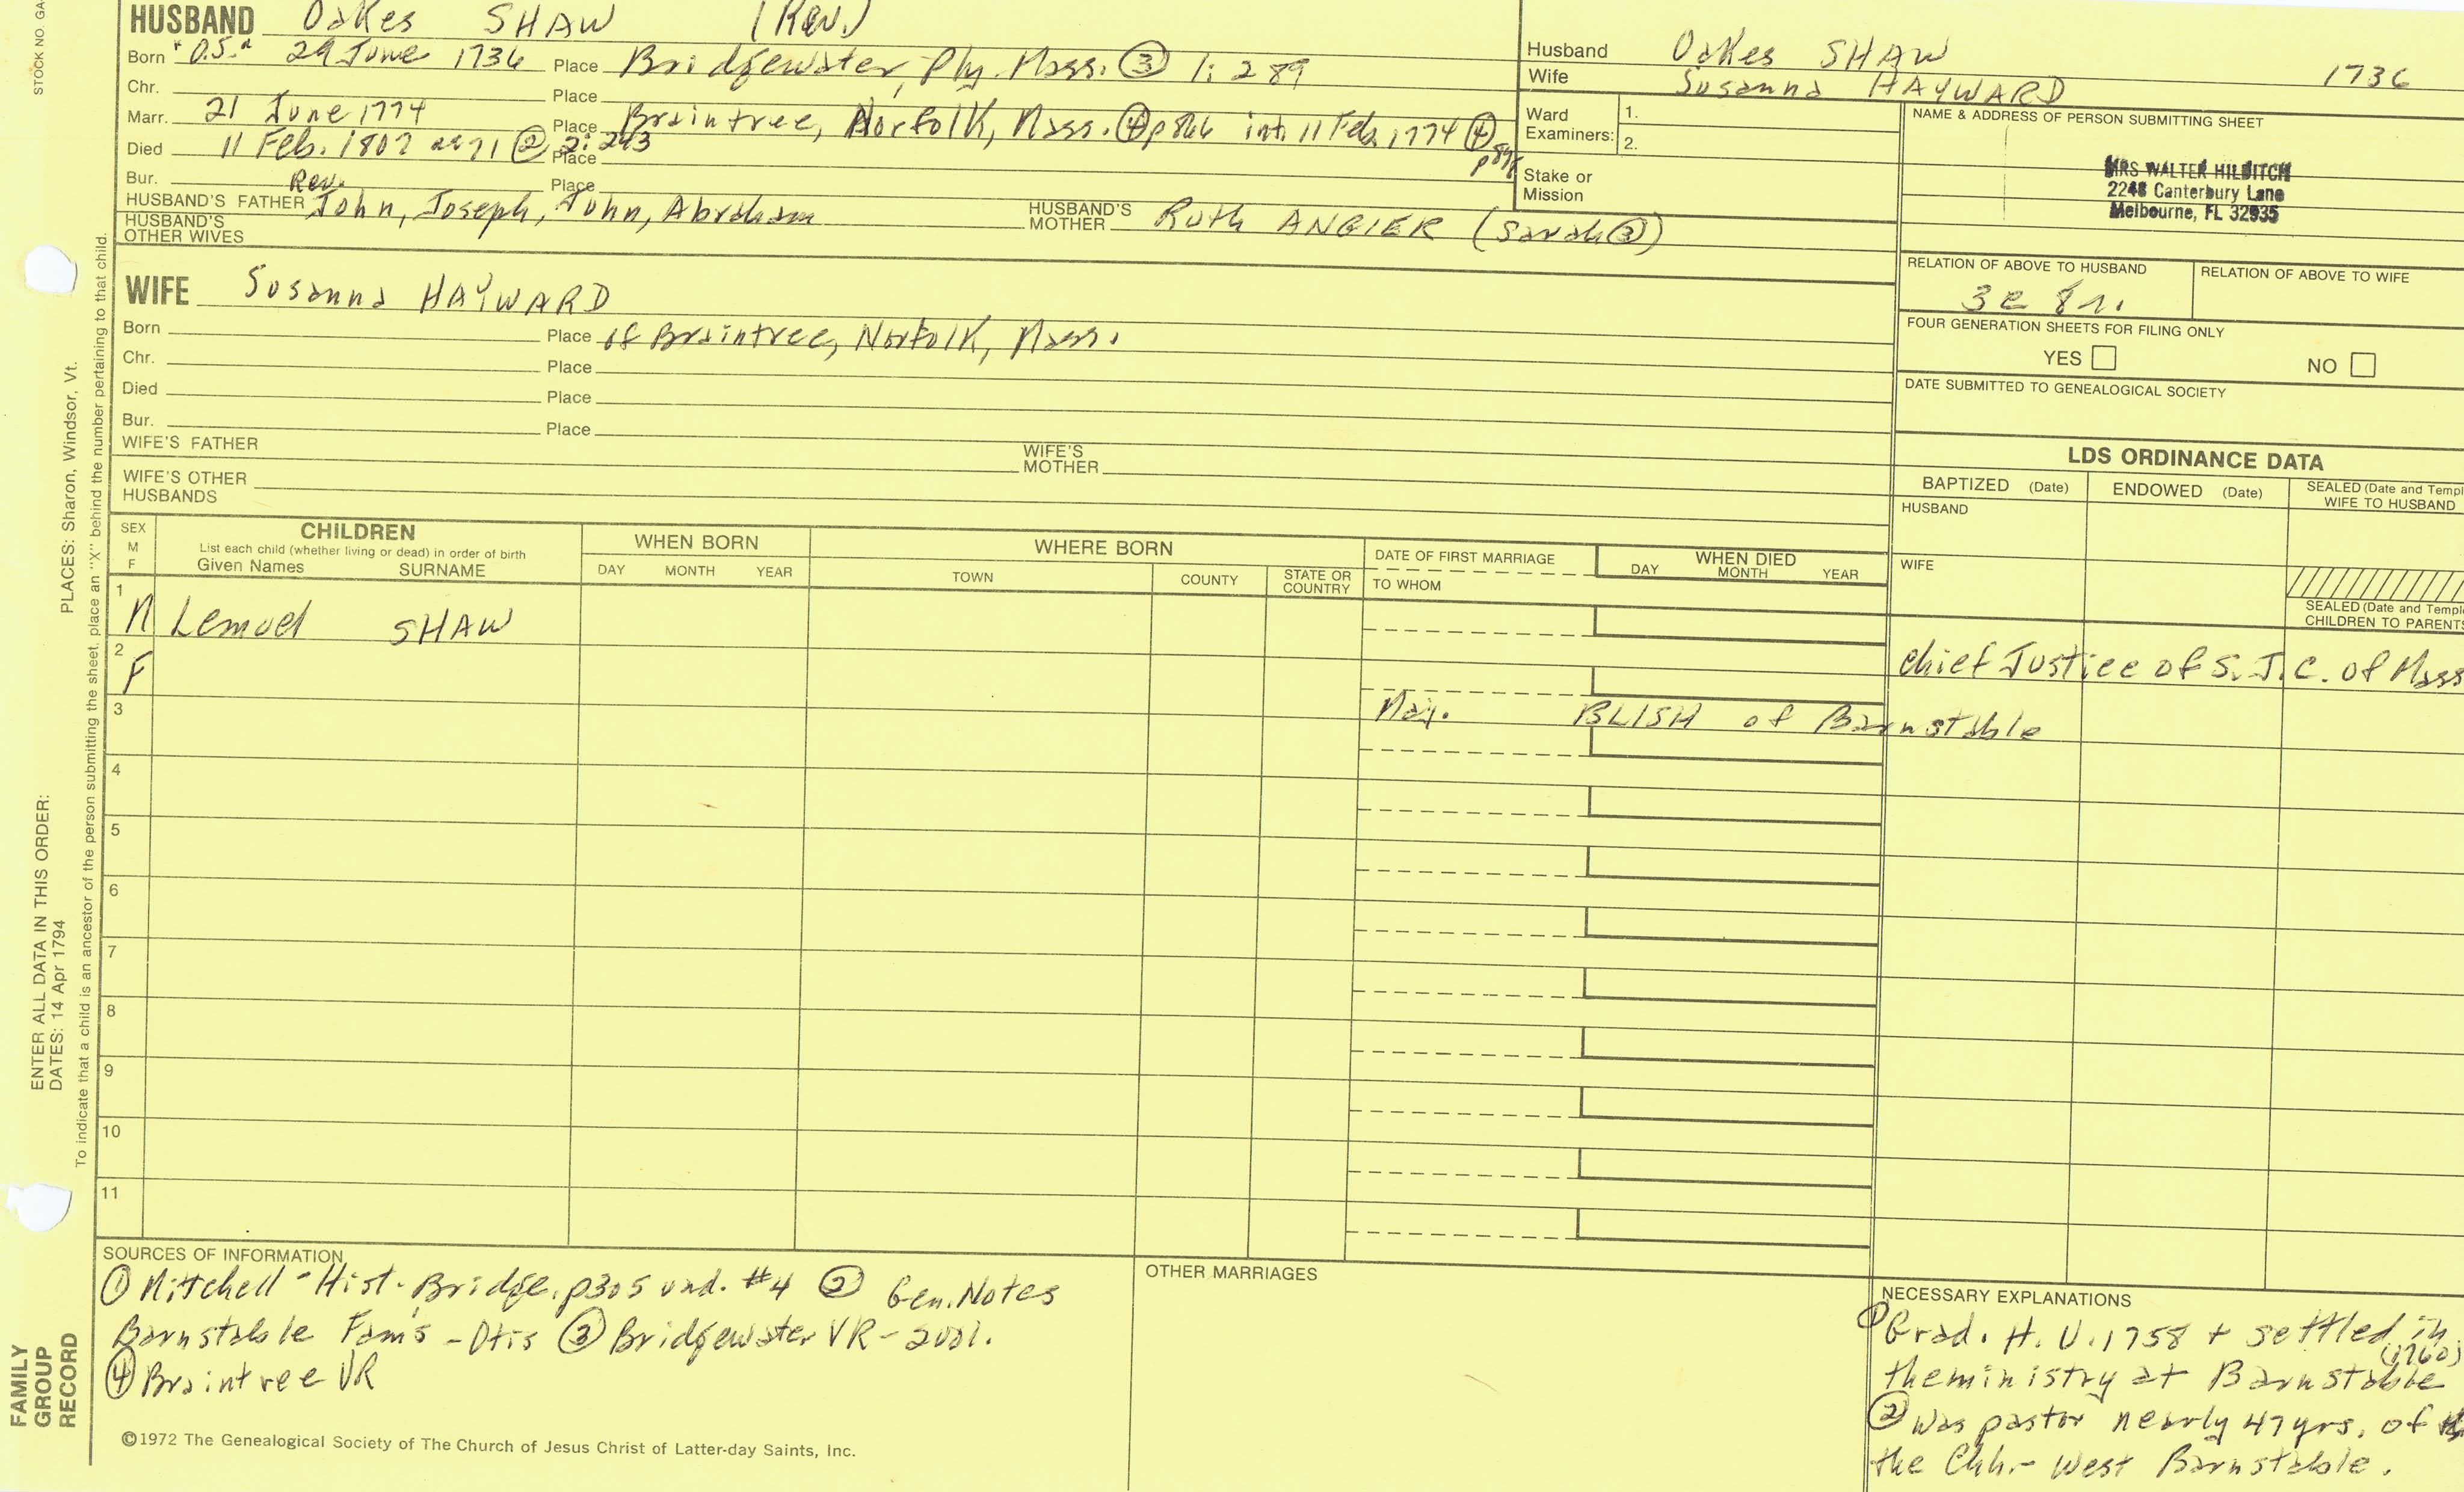 STOCK NO. GA-
HUSBAND Oakes SHAW (Rev.)
Born "O.S." 29 June 1736 Place Bridgewater, Ply. Mass. ③ 1:289
Chr. Place
Marr. 21 June 1774 Place Braintree, Norfolk, Mass. ④ p866 int. 11 Feb. 1774 ④
Died 11 Feb. 1807 ae 71 ② 2:243 Place
Bur. Place
Rev.
HUSBAND'S FATHER John, Joseph, John, Abraham HUSBAND'S MOTHER Ruth ANGIER (Sarah ③)
HUSBAND'S OTHER WIVES
Husband Oakes SHAW 1736
Wife Susanna HAYWARD
Ward Examiners: 1.
2.
Stake or Mission
NAME & ADDRESS OF PERSON SUBMITTING SHEET
MRS WALTER HILDITCH
2248 Canterbury Lane
Melbourne, FL 32935
RELATION OF ABOVE TO HUSBAND RELATION OF ABOVE TO WIFE
3c 8r.
FOUR GENERATION SHEETS FOR FILING ONLY
YES NO
DATE SUBMITTED TO GENEALOGICAL SOCIETY
WIFE Susanna HAYWARD
Born Place of Braintree, Norfolk, Mass.
Chr. Place
Died Place
Bur. Place
WIFE'S FATHER WIFE'S MOTHER
WIFE'S OTHER HUSBANDS
LDS ORDINANCE DATA
BAPTIZED (Date) ENDOWED (Date) SEALED (Date and Templ
WIFE TO HUSBAND
HUSBAND
WIFE
SEALED (Date and Templ
CHILDREN TO PARENTS
SEX M F CHILDREN
List each child (whether living or dead) in order of birth
Given Names SURNAME
WHEN BORN
DAY MONTH YEAR
WHERE BORN
TOWN COUNTY STATE OR COUNTRY
DATE OF FIRST MARRIAGE
TO WHOM
WHEN DIED
DAY MONTH YEAR
1 M Lemuel SHAW
2 F Chief Justice of S.J.C. of Mass
3 Maj. BLISH of Barnstable
4
5
6
7
8
9
10
11
SOURCES OF INFORMATION
① Mitchell - Hist. Bridge. p305 und. #4 ② Gen. Notes
Barnstable Fam's - Otis ③ Bridgewater VR - 2vol.
④ Braintree VR
OTHER MARRIAGES
NECESSARY EXPLANATIONS
① Grad. H. U. 1758 + settled in
the ministry at Barnstable (1760)
② Was pastor nearly 47 yrs. of
the Chh. - West Barnstable.
©1972 The Genealogical Society of The Church of Jesus Christ of Latter-day Saints, Inc.
ENTER ALL DATA IN THIS ORDER:
DATES: 14 Apr 1794 PLACES: Sharon, Windsor, Vt.
To indicate that a child is an ancestor of the person submitting the sheet, place an "X" behind the number pertaining to that child.
FAMILY
GROUP
RECORD